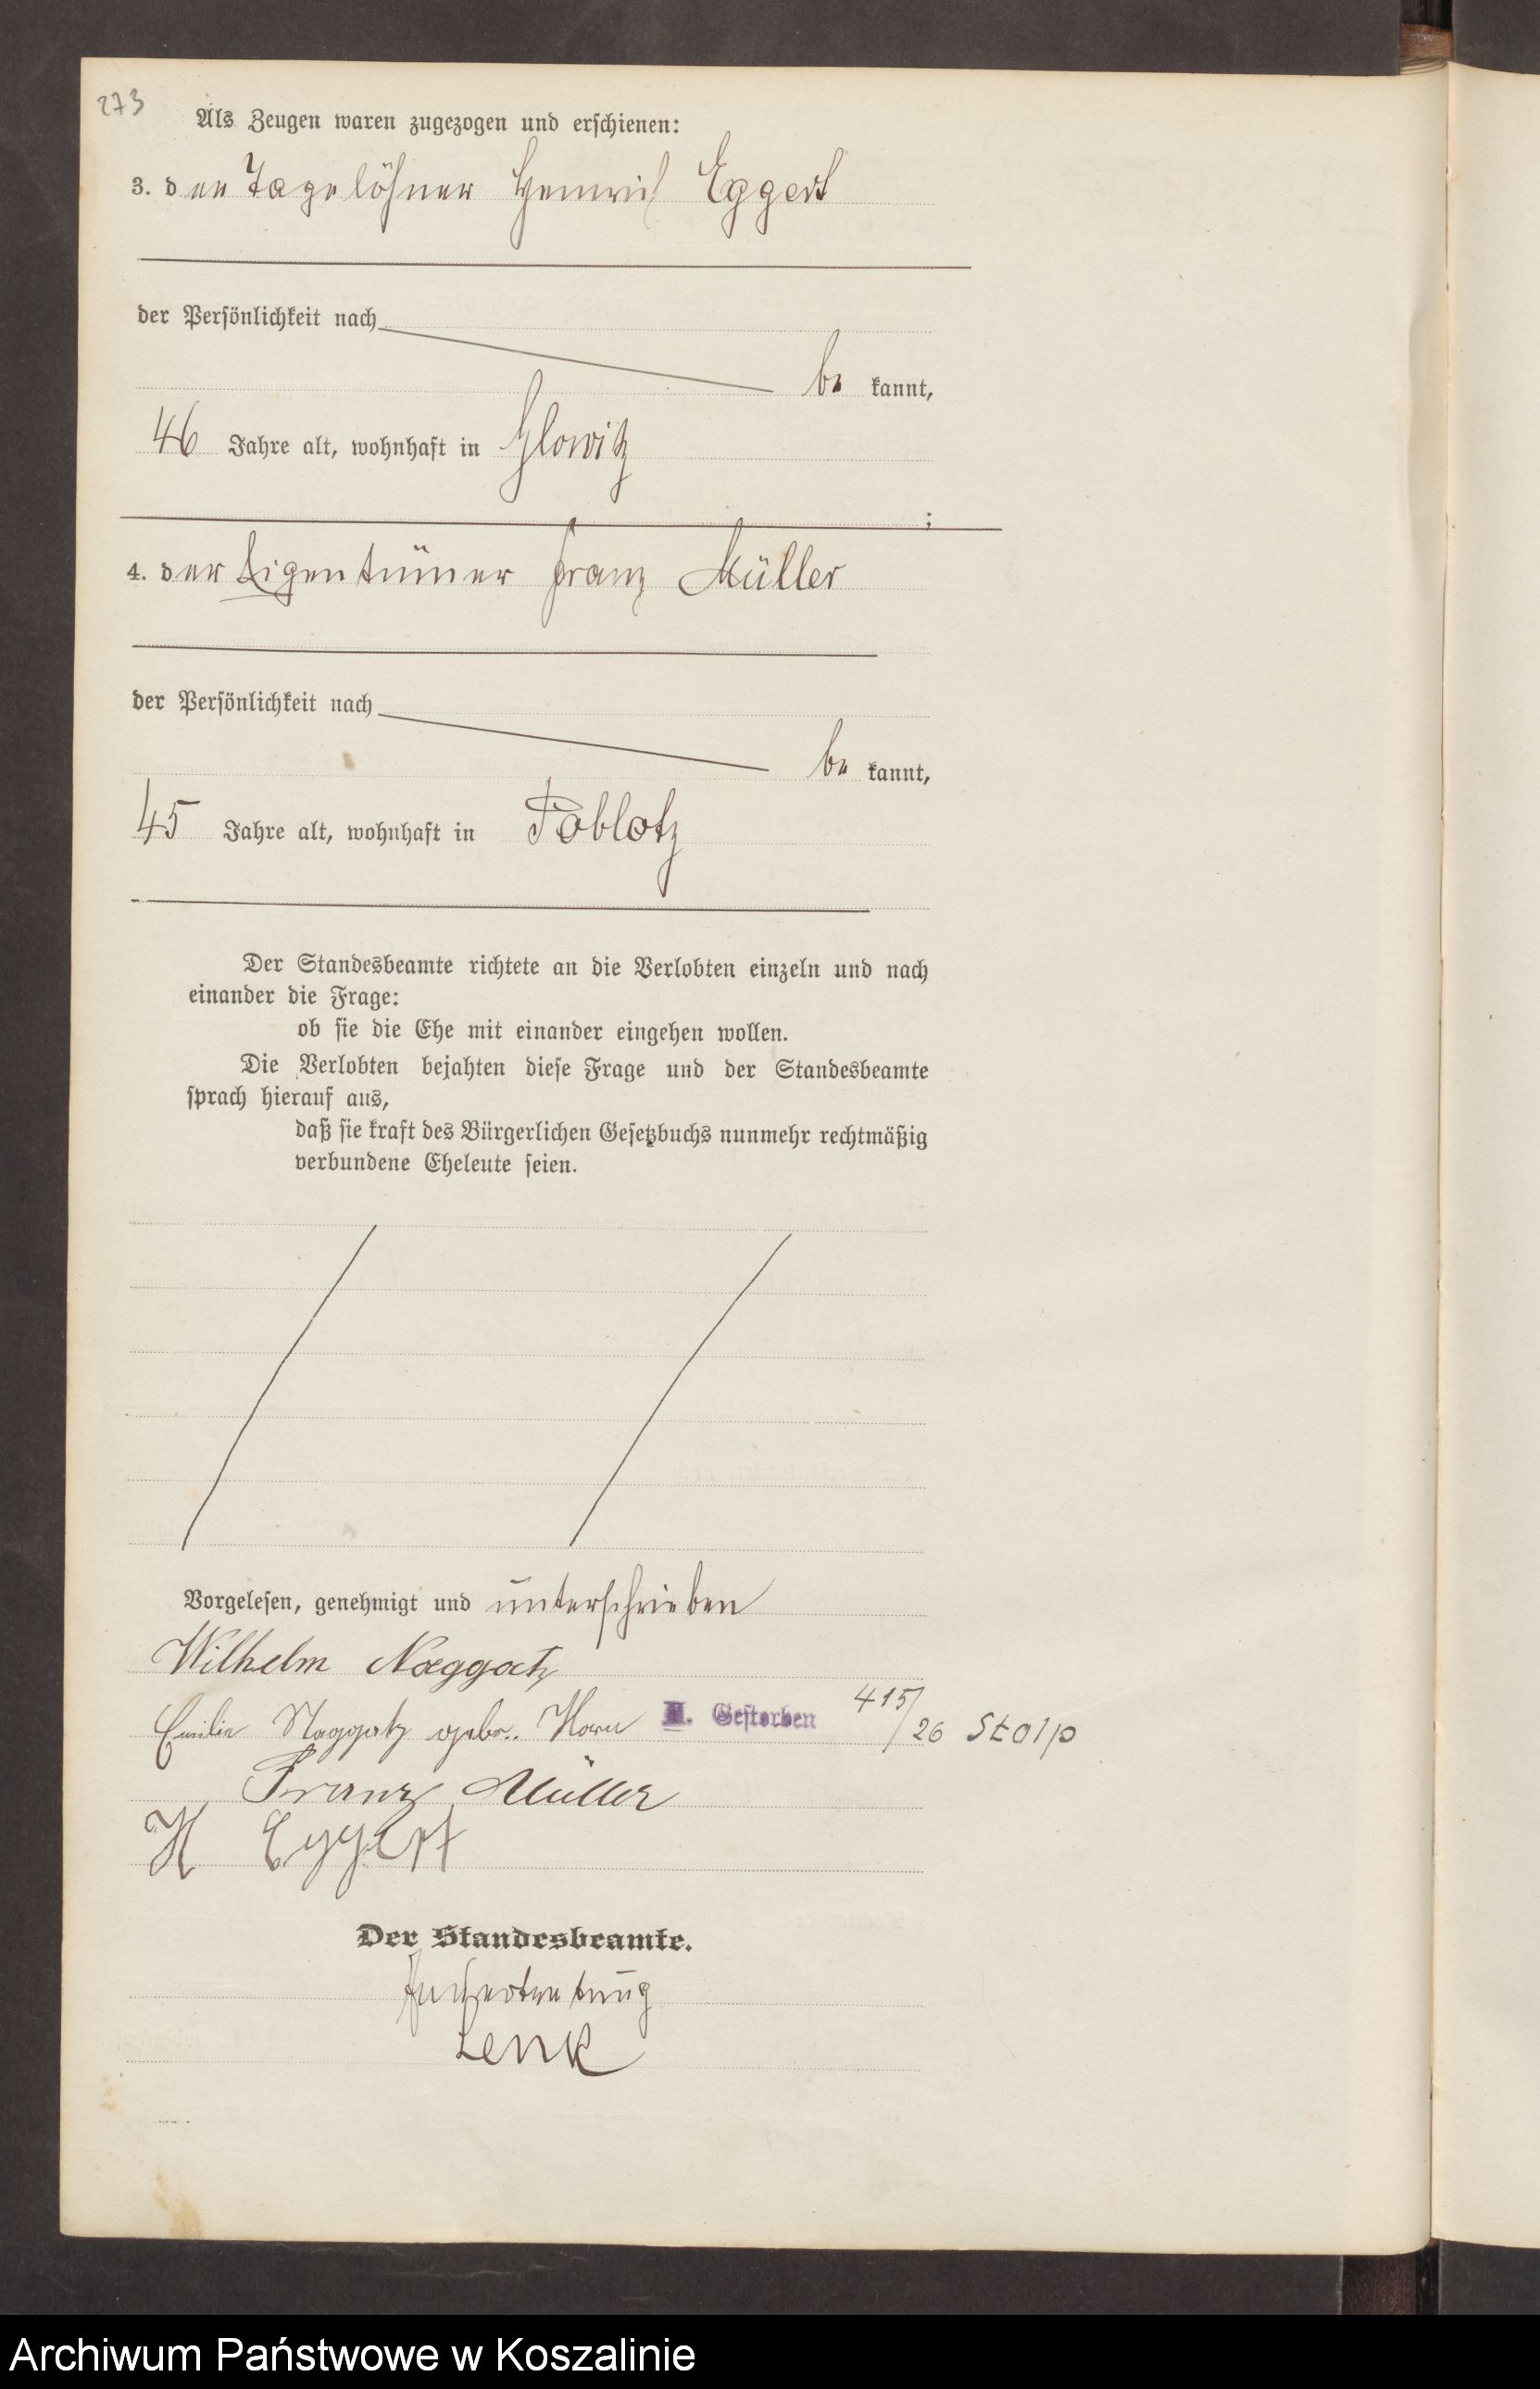 273
Als Zeugen waren zugezogen und erschienen:
3. der Tagelöhner Heinrich Eggert
der Persönlichkeit nach
be kannt,
46 Jahre alt, wohnhaft in Glowitz
;
4. der Eigentümer Franz Müller
der Persönlichkeit nach
be kannt,
45 Jahre alt, wohnhaft in Poblotz
Der Standesbeamte richtete an die Verlobten einzeln und nach
einander die Frage:
ob sie die Ehe mit einander eingehen wollen.
Die Verlobten bejahten diese Frage und der Standesbeamte
sprach hierauf aus,
daß sie kraft des Bürgerlichen Gesetzbuchs nunmehr rechtmäßig
verbundene Eheleute seien.
Vorgelesen, genehmigt und unterschrieben
Wilhelm Naggatz
Emilie Naggatz gebr. Horn Gestorben 415/26 Stolp
Franz Müller
H Eggert
Der Standesbeamte.
In Vertretung
Lenk
Archiwum Państwowe w Koszalinie